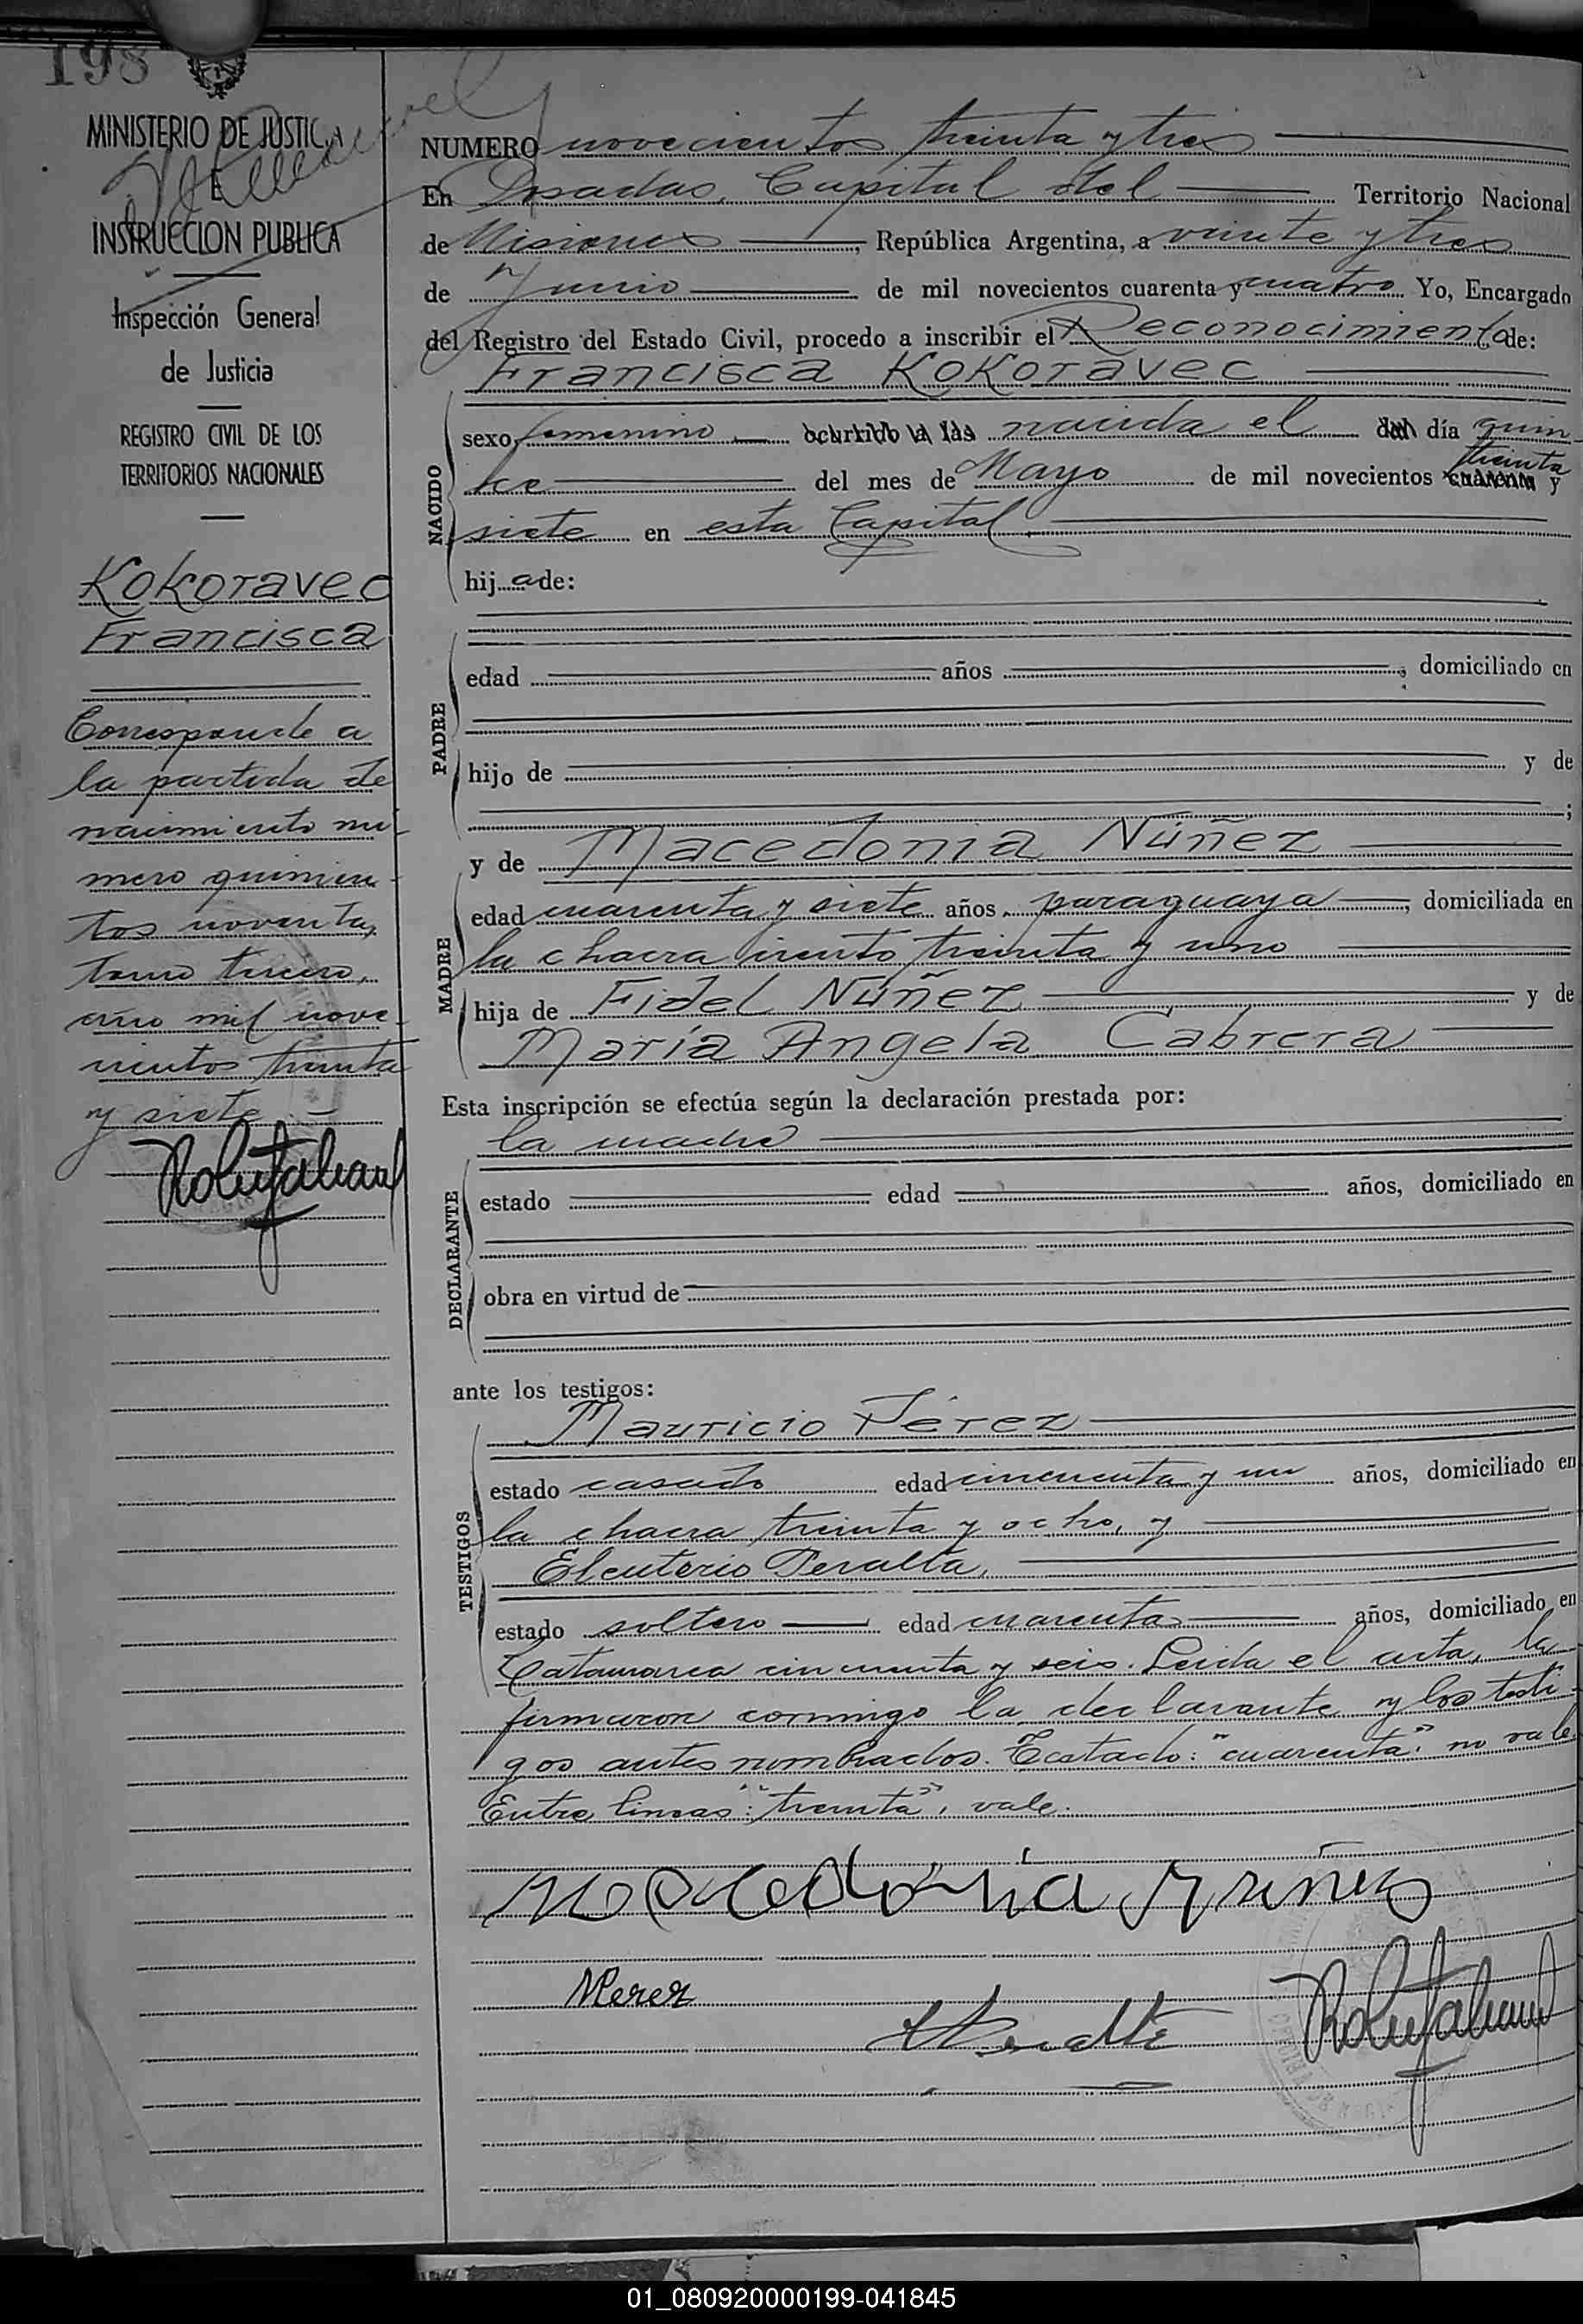 198
MINISTERIO DE JUSTICIA
E
INSTRUCCION PUBLICA
Inspección General
de Justicia
REGISTRO CIVIL DE LOS
TERRITORIOS NACIONALES
Kokoravec
Francisca
Corresponde a
la partida de
nacimiento nú-
mero quinien-
tos noventa,
tomo tercero,
año mil nove-
cientos treinta
y siete
NUMERO novecientos treinta y tres
En Posadas, Capital del Territorio Nacional
de Misiones, República Argentina, a veinte y tres
de Junio de mil novecientos cuarenta y cuatro Yo, Encargado
del Registro del Estado Civil, procedo a inscribir el Reconocimiento de:
Francisca Kokoravec
sexo femenino ocurrido a las nacida el del día quin-
treinta
ce del mes de Mayo de mil novecientos cuarenta y
siete en esta Capital
NACIDO
hija de:
PADRE
edad años, domiciliado en
hijo de y de
;
y de Macedonia Núñez
MADRE
edad cuarenta y siete años, paraguaya, domiciliada en
la chacra ciento treinta y uno
hija de Fidel Núñez y de
María Angela Cabrera
Esta inscripción se efectúa según la declaración prestada por:
la madre
DECLARANTE
estado edad años, domiciliado en
obra en virtud de
ante los testigos:
Mauricio Pérez
TESTIGOS
estado casado edad cincuenta y un años, domiciliado en
la chacra treinta y ocho, y
Eleuterio Peralta,
estado soltero edad cuarenta años, domiciliado en
Catamarca cincuenta y seis. Leída el acta, la
firmaron conmigo la declarante y los testi-
gos antes nombrados. Testado: "cuarenta" no vale.
Entre líneas: "treinta", vale.
Macedonia Núñez
MPerez
01_080920000199-041845